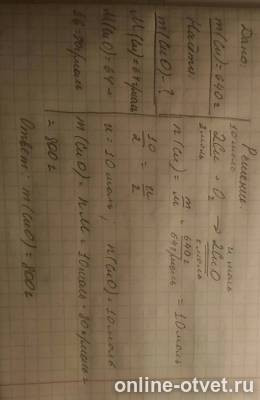 Дано:
m(Cu)=640г
Найти
m(CuO)-?
M(Cu)=64г/моль
M(CuO)=64+
16=80г/моль
Решение.
10 моль и моль
2Cu + O₂ → 2CuO
2 моль 2 моль
n(Cu) = m/M = 640г/64г/моль = 10 моль
10/2 = и/2
и = 10 моль; n(CuO)=10моль
m(CuO) = n·M = 10моль · 80г/моль =
= 800г
Ответ: m(CuO)=800г
online-otvet.ru